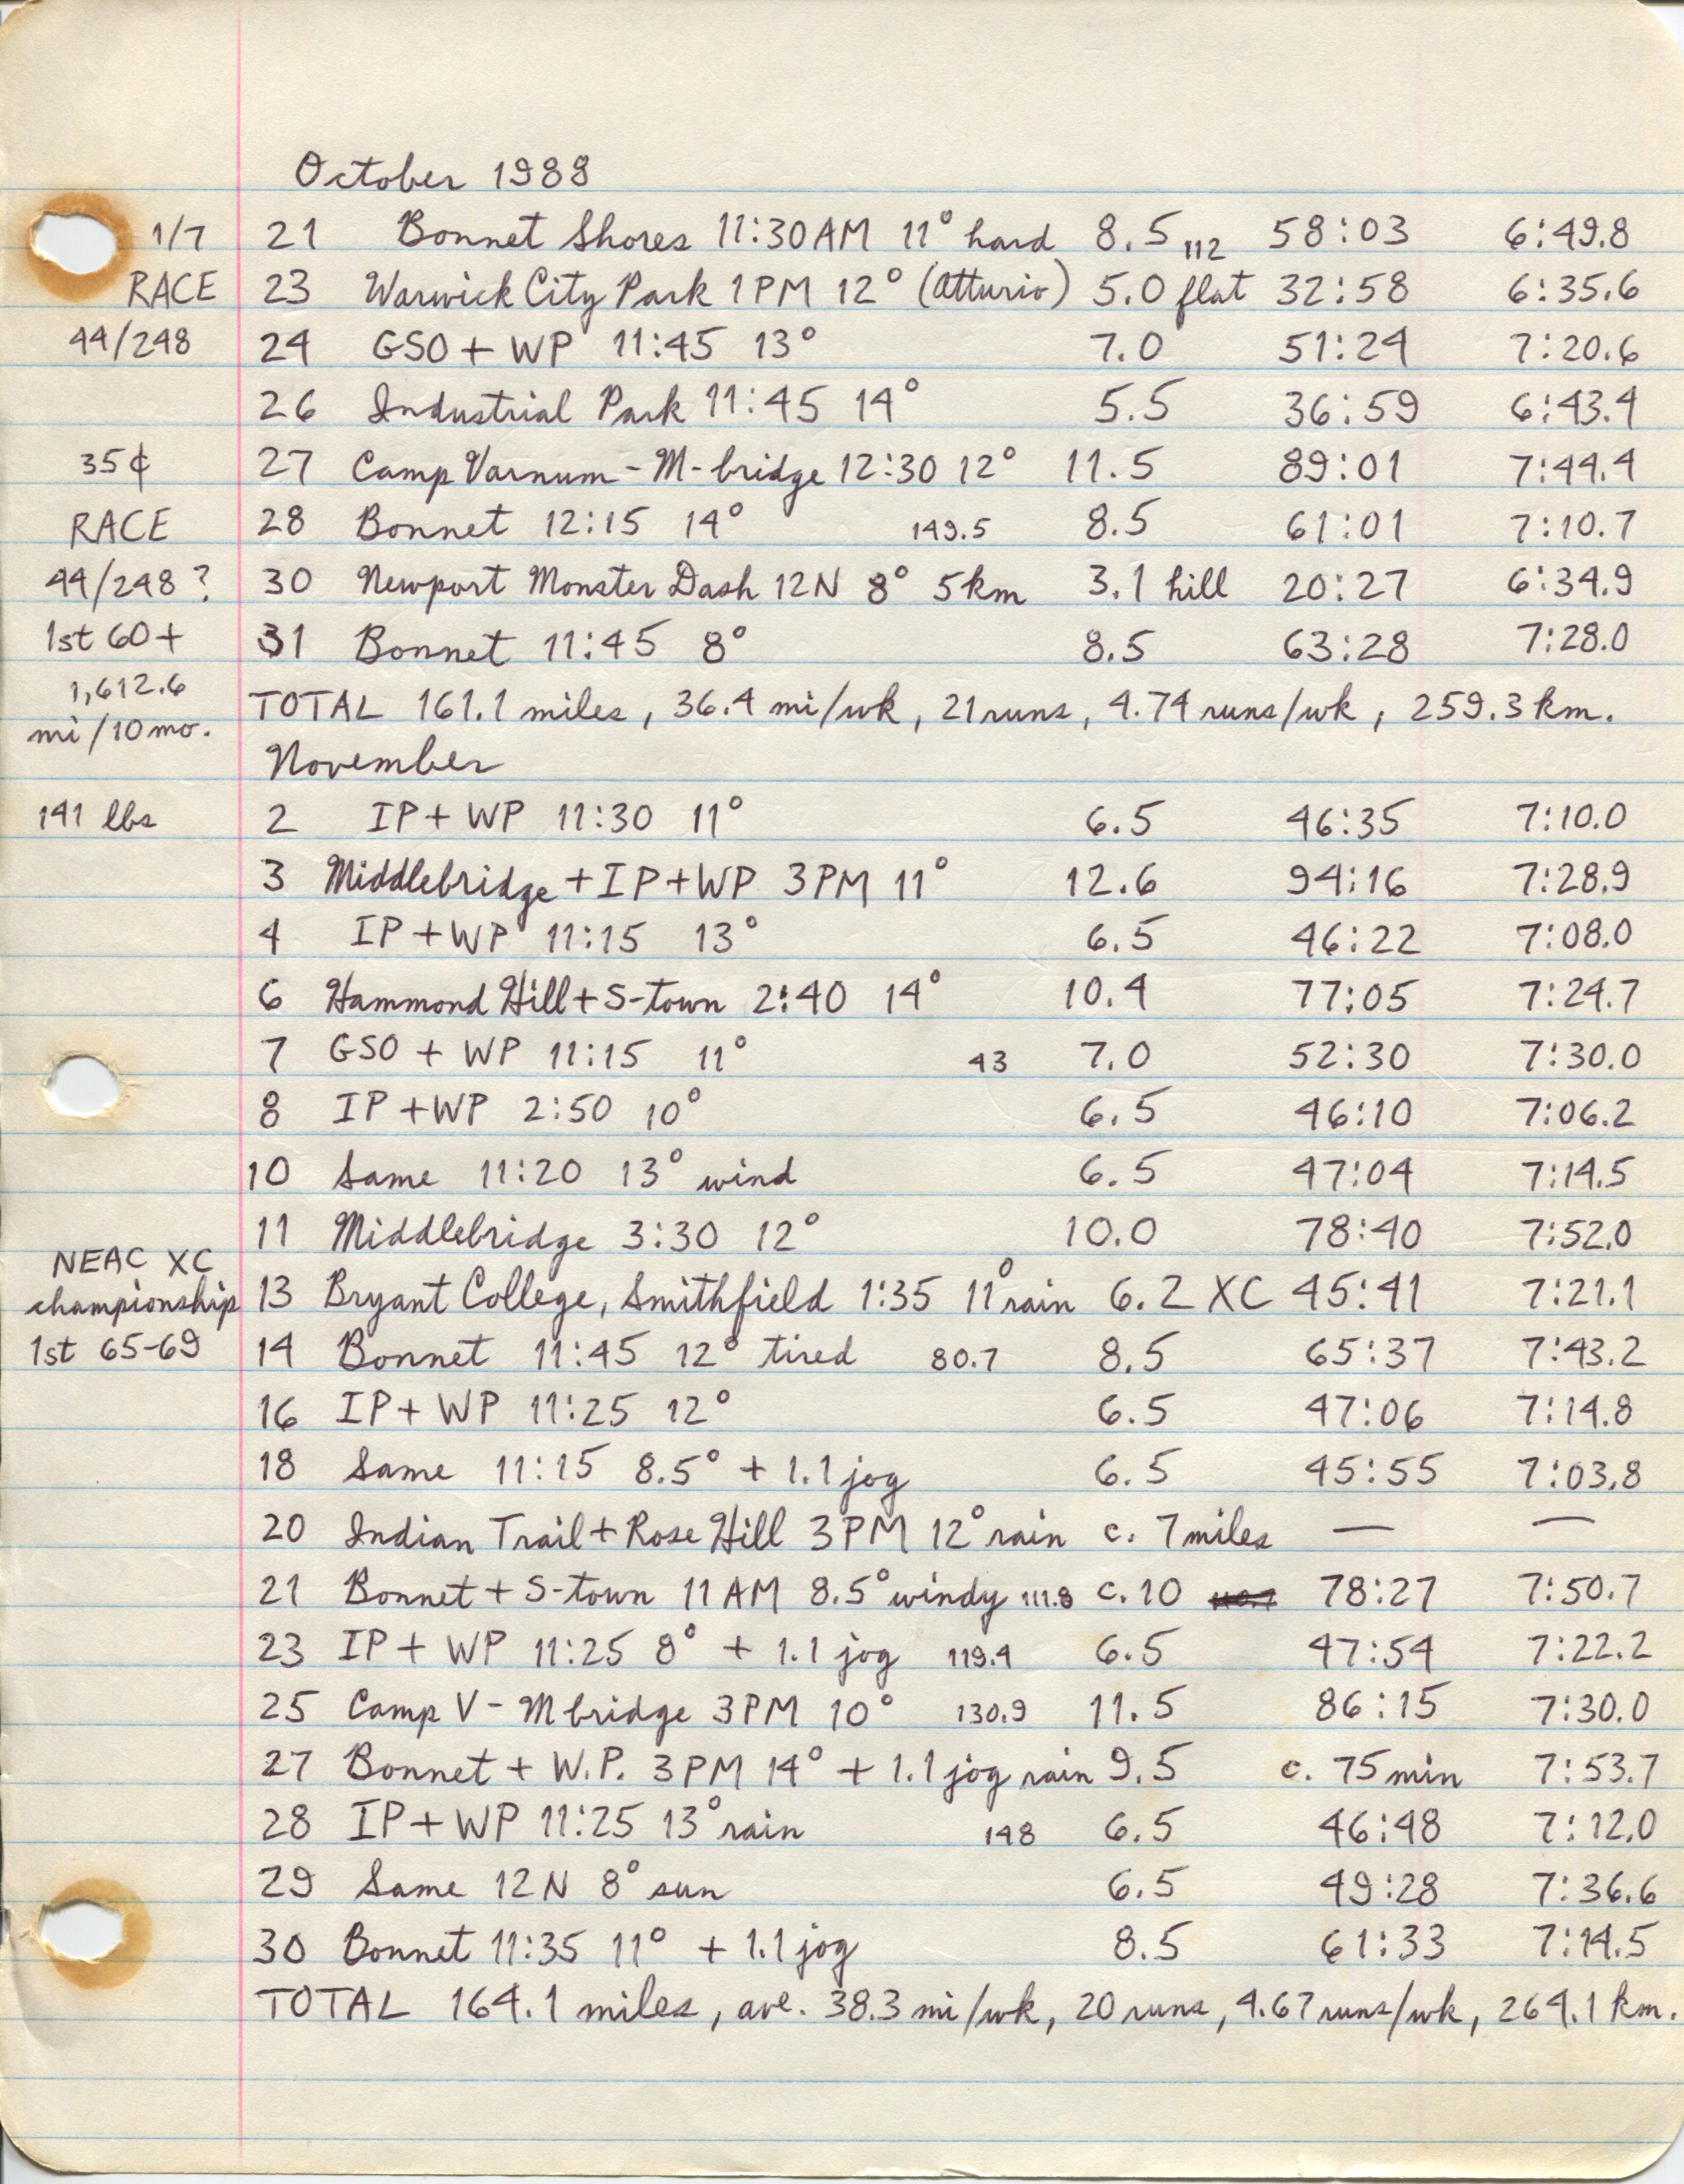 October 1988
1/7 21 Bonnet Shores 11:30 AM 11° hard 8.5 112 58:03 6:49.8
RACE 23 Warwick City Park 1 PM 12° (Atturio) 5.0 flat 32:58 6:35.6
44/248 24 GSO + WP 11:45 13° 7.0 51:24 7:20.6
26 Industrial Park 11:45 14° 5.5 36:59 6:43.4
35¢ 27 Camp Varnum - M-bridge 12:30 12° 11.5 89:01 7:44.4
RACE 28 Bonnet 12:15 14° 149.5 8.5 61:01 7:10.7
44/248? 30 Newport Monster Dash 12N 8° 5km 3.1 hill 20:27 6:34.9
1st 60+ 31 Bonnet 11:45 8° 8.5 63:28 7:28.0
1,612.6
mi/10mo. TOTAL 161.1 miles, 36.4 mi/wk, 21 runs, 4.74 runs/wk, 259.3 km.
November
141 lbs 2 IP + WP 11:30 11° 6.5 46:35 7:10.0
3 Middlebridge + IP + WP 3PM 11° 12.6 94:16 7:28.9
4 IP + WP 11:15 13° 6.5 46:22 7:08.0
6 Hammond Hill + S-town 2:40 14° 10.4 77:05 7:24.7
7 GSO + WP 11:15 11° 43 7.0 52:30 7:30.0
8 IP + WP 2:50 10° 6.5 46:10 7:06.2
10 Same 11:20 13° wind 6.5 47:04 7:14.5
11 Middlebridge 3:30 12° 10.0 78:40 7:52.0
NEAC XC
championship 13 Bryant College, Smithfield 1:35 11° rain 6.2 XC 45:41 7:21.1
1st 65-69 14 Bonnet 11:45 12° tired 80.7 8.5 65:37 7:43.2
16 IP + WP 11:25 12° 6.5 47:06 7:14.8
18 Same 11:15 8.5° + 1.1 jog 6.5 45:55 7:03.8
20 Indian Trail + Rose Hill 3 PM 12° rain c. 7 miles — —
21 Bonnet + S-town 11 AM 8.5° windy 111.8 c. 10 78:27 7:50.7
23 IP + WP 11:25 8° + 1.1 jog 119.4 6.5 47:54 7:22.2
25 Camp V - M bridge 3PM 10° 130.9 11.5 86:15 7:30.0
27 Bonnet + W.P. 3 PM 14° + 1.1 jog rain 9.5 c. 75 min 7:53.7
28 IP + WP 11:25 13° rain 148 6.5 46:48 7:12.0
29 Same 12 N 8° sun 6.5 49:28 7:36.6
30 Bonnet 11:35 11° + 1.1 jog 8.5 61:33 7:14.5
TOTAL 164.1 miles, ave. 38.3 mi/wk, 20 runs, 4.67 runs/wk, 264.1 km.